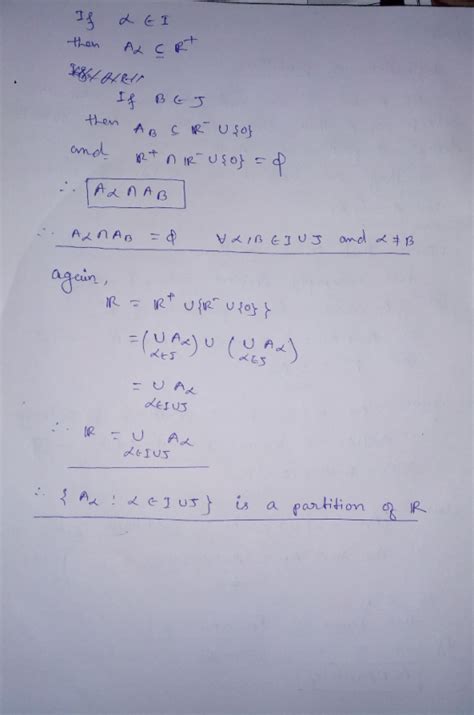 If α ∈ I
then Aα ⊆ R⁺
If B ∈ J
then AB ⊆ R⁻ ∪ {0}
and R⁺ ∩ R⁻ ∪ {0} = ϕ
∴ Aα ∩ AB
∴ Aα ∩ AB = ϕ ∀ α, B ∈ I ∪ J and α ≠ B
again,
R = R⁺ ∪ {R⁻ ∪ {0}}
= (∪ Aα) ∪ (∪ Aα)
α∈J α∈J
= ∪ Aα
α∈I∪J
∴ R = ∪ Aα
α∈I∪J
∴ { Aα : α ∈ I ∪ J } is a partition of R